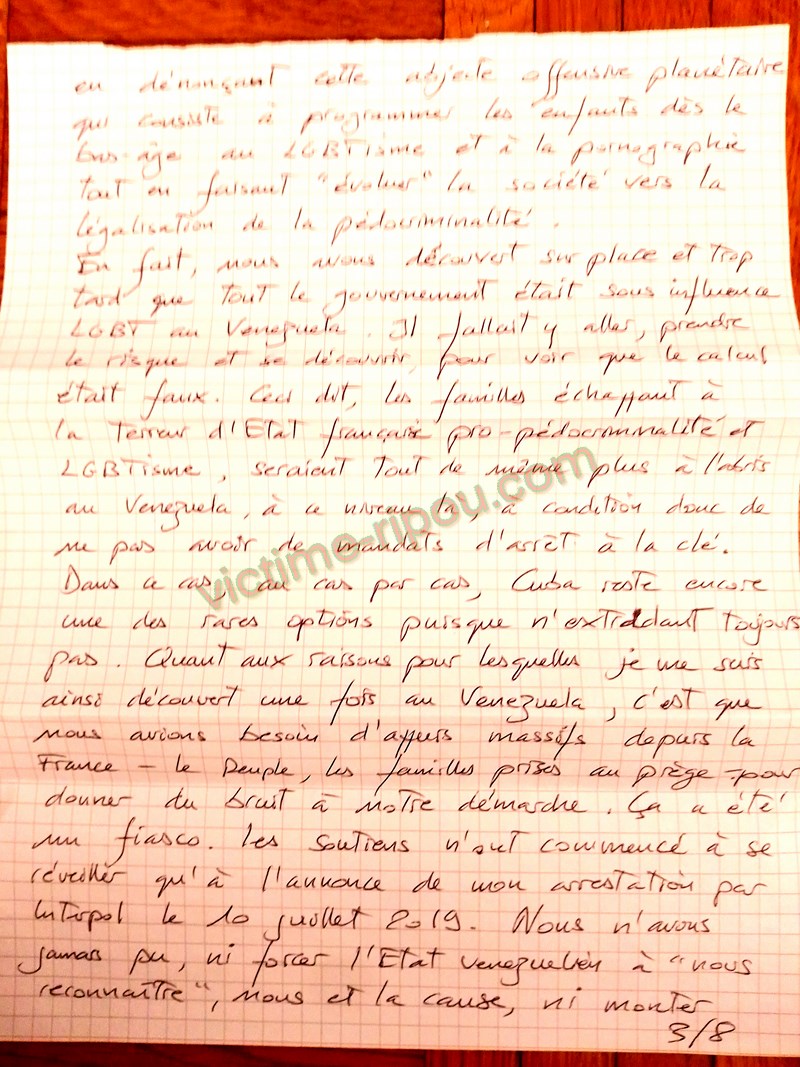 en dénonçant cette abjecte offensive planétaire
qui consiste à programmer les enfants dès le
bas-âge au LGBTisme et à la pornographie
tout en faisant "évoluer" la société vers la
légalisation de la pédocriminalité.
En fait, nous avons découvert sur place et trop
tard que tout le gouvernement était sous influence
LGBT au Venezuela. Il fallait y aller, prendre
le risque et se découvrir, pour voir que le calcul
était faux. Ceci dit, les familles échappant à
la Terreur d'Etat française pro-pédocriminalité et
LGBTisme, seraient tout de même plus à l'abris
au Venezuela, à ce niveau là, à condition donc de
ne pas avoir de mandats d'arrêt à la clé.
Dans ce cas, au cas par cas, Cuba reste encore
une des rares options puisque n'extradant toujours
pas. Quant aux raisons pour lesquelles je me suis
ainsi découvert une fois au Venezuela, c'est que
nous avions besoin d'appuis massifs depuis la
France - le Peuple, les familles prises au piège - pour
donner du bruit à notre démarche. Ça a été
un fiasco. Les soutiens n'ont commencé à se
réveiller qu'à l'annonce de mon arrestation par
Interpol le 10 juillet 2019. Nous n'avons
jamais pu, ni forcer l'Etat venezuelien à "nous
reconnaître", nous et la cause, ni monter
3/8
victime-ripou.com